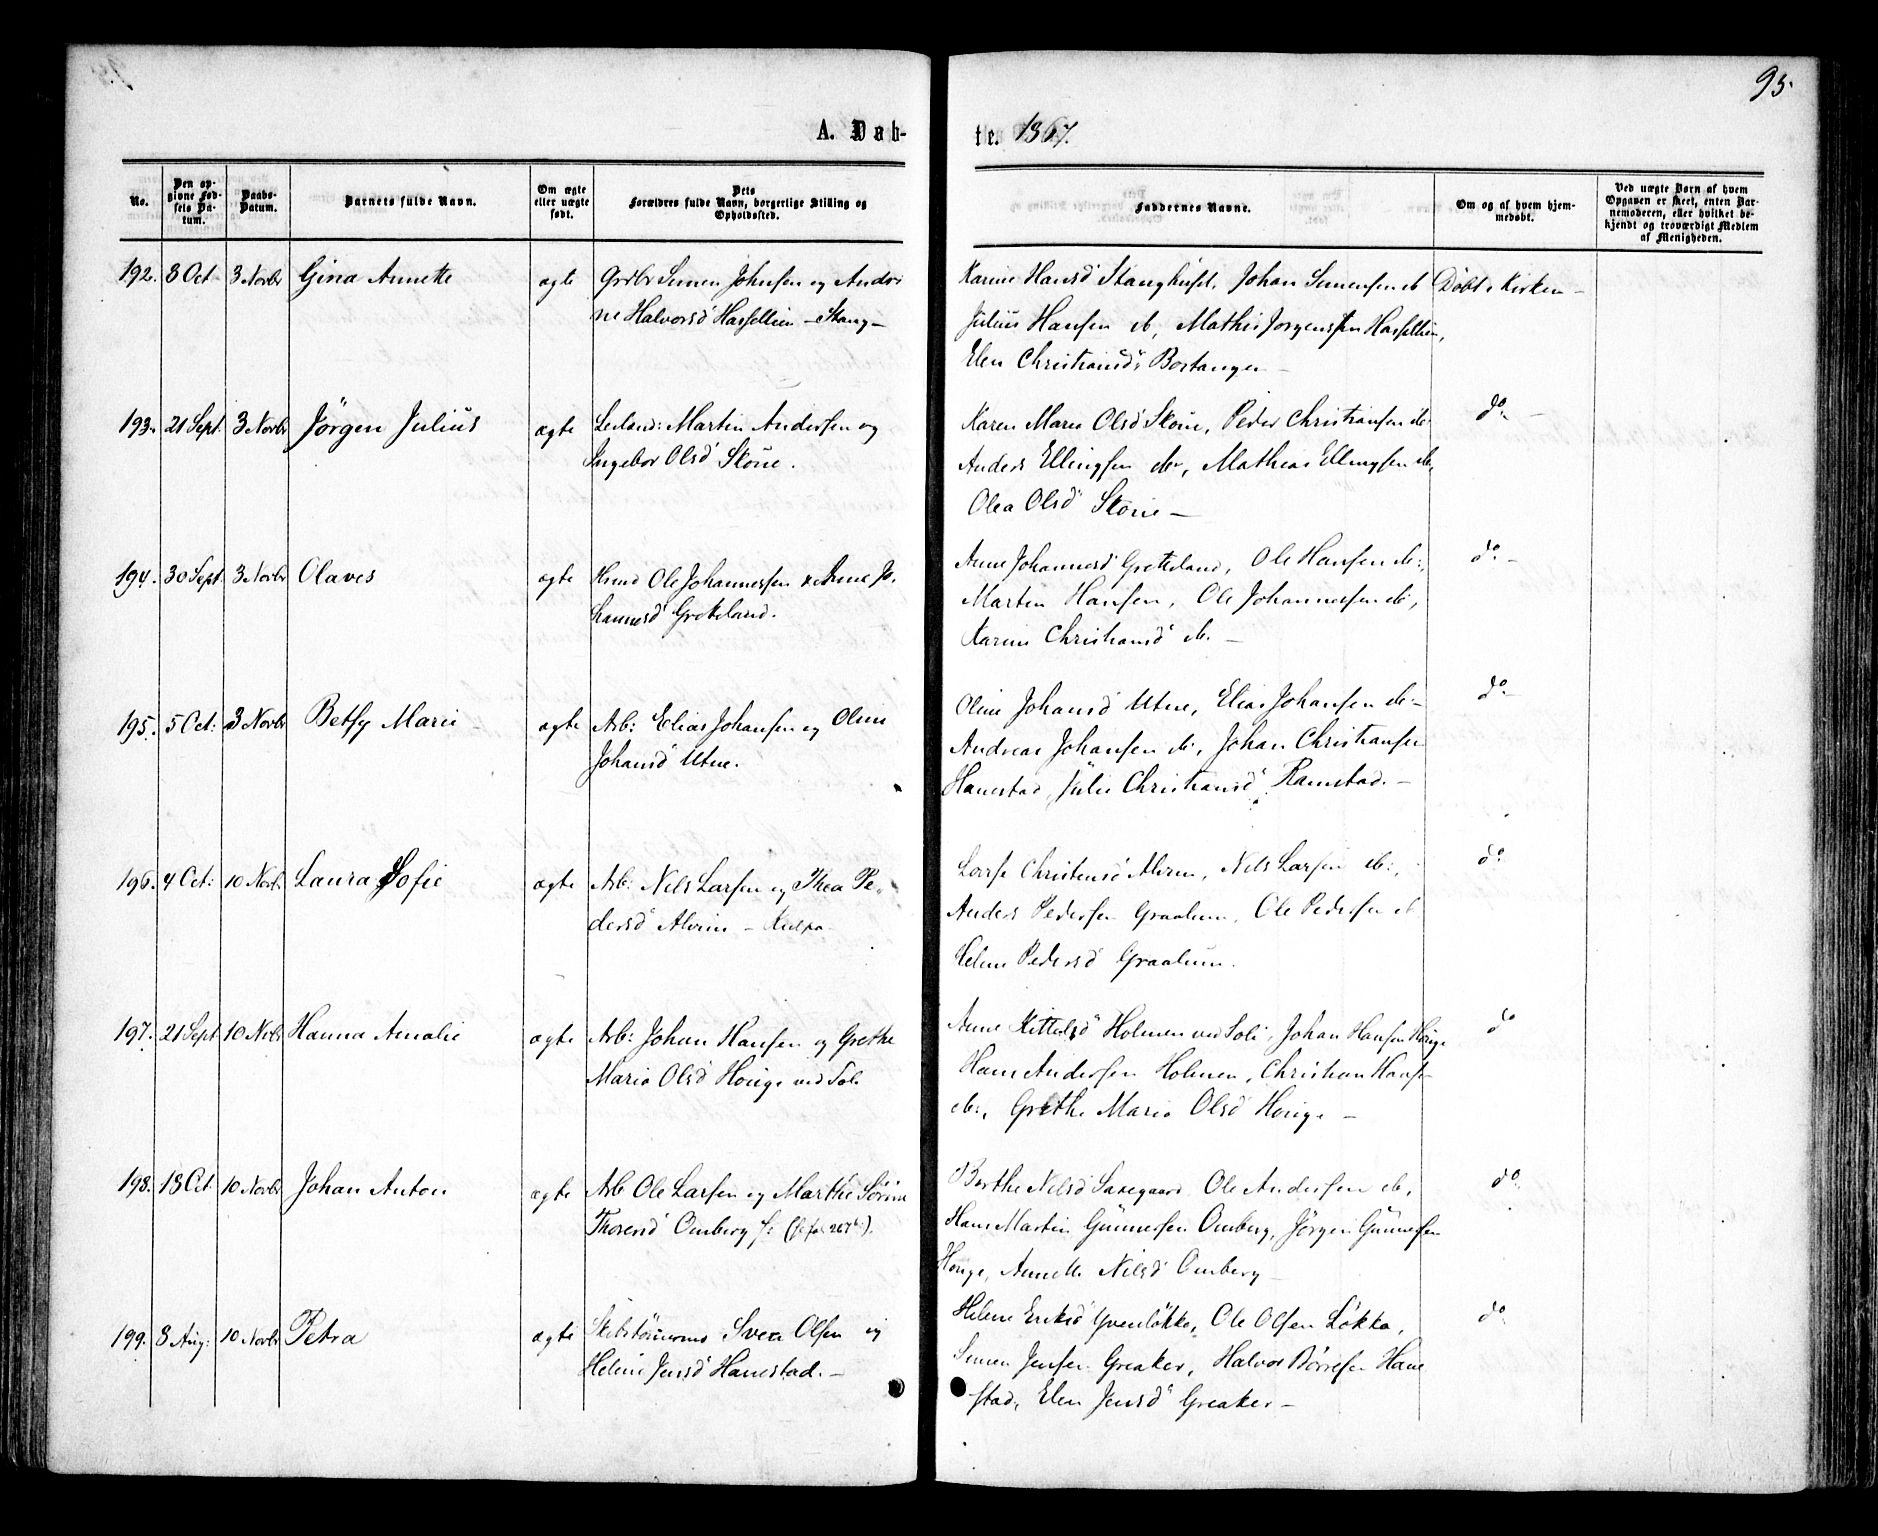 93.
A. Døb-
te. 1867.
No.
Den op-
givne Fød-
sels Da-
tum.
Daabs-
Datum.
Barnets fulde Navn.
Om ægte
eller uægte
født.
Dets
Forældres fulde Navn, borgerlige Stilling og
Opholdssted.
Faddernes Navne.
Om og af hvem hjem-
medøbt.
Ved uægte Børn af hvem
Opgaven er skeet, enten Bar-
nemoderen, eller hvilket be-
kjendt og troværdigt Medlem
af Menigheden.
192. 3 Oct 3 Novbr Gina Annette ægte Grdbr Simen Johnsen og Andri
ne Halvorsd Hassellien – Skang –
Karine Hansd Stanghuset, Johan Simensen d Døbt i Kirken –
Julius Hansen d, Mathis Jorgensen Hassellien,
Elen Christiansd Bostangen –
193. 21 Sept 3 Novbr Jörgen Julius ægte Leiland: Martin Andersen og
Ingebor Olsd Skoue.
Karen Maria Olsd Skoue, Peder Christiansen do do –
Anders Ellingsen do, Mathias Ellingsen do,
Olea Olsd Skoue –
194. 30 Sept 3 Novbr Olaves ægte Hmd Ole Johannessen & Anne Jo,
hannesd Gretteland.
Anne Johannesd Gretteland, Ole Hansen do:, do –
Martin Hansen, Ole Johannessen do,
Karine Christiansd do. –
195. 5 Oct: 3 Novbr Betsy Marie ægte Arb: Elias Johansen og Oline
Johansd Utne.
Oline Johansd Utne, Elias Johansen do – do –
Andreas Johansen do, Johan Christiansen
Hanestad, Julie Christiansd Ramstad. –
196. 4 Oct: 10 Novb. Laura Sofie ægte Arb: Nils Larsen og Thea Pe-
dersd Alvim –
Lovise Christensd Alvim, Nils Larsen do:, do
Anders Pedersen Graalum, Ole Pedersen d
Helene Pedersd Graalum.
197. 21 Sept 10 Novbr Hanna Amalie ægte Arb: Johan Hansen og Grethe
Maria Olsd Houge ved Soli
Anne Kittelsd Holmen ved Soli, Johan Hansen Houge do
Hans Andersen Holmen, Christian Hans-
do:, Grethe Maria Olsd Houge –
198. 18 Oct 10 Novbr Johan Anton ægte Arb Ole Larsen og Marthe Sörine
Thoresd Omberg
Berthe Nilsd Ole Andersen do, do
Hans Martin Gunnersen Omberg, Jörgen Gunnersen
Houge, Annette Nilsd Omberg –
199. 8 Aug: 10 Novbr Petra ægte Skibstömmermd Sven Olsen og
Helene Jensd Hanestad. –
Helene Eriksd Yvenlökke, Ole Olsen Lökka, do
Simen Jensen Greaker, Halvor Börresen Hane
stad, Elen Jensd Greaker –